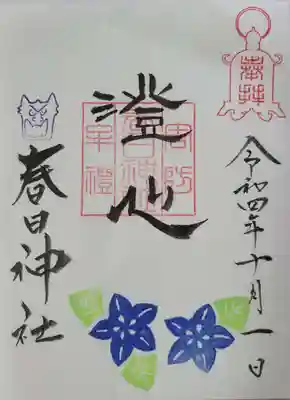 奉拝
令和四年十月一日
澄心
春日神社